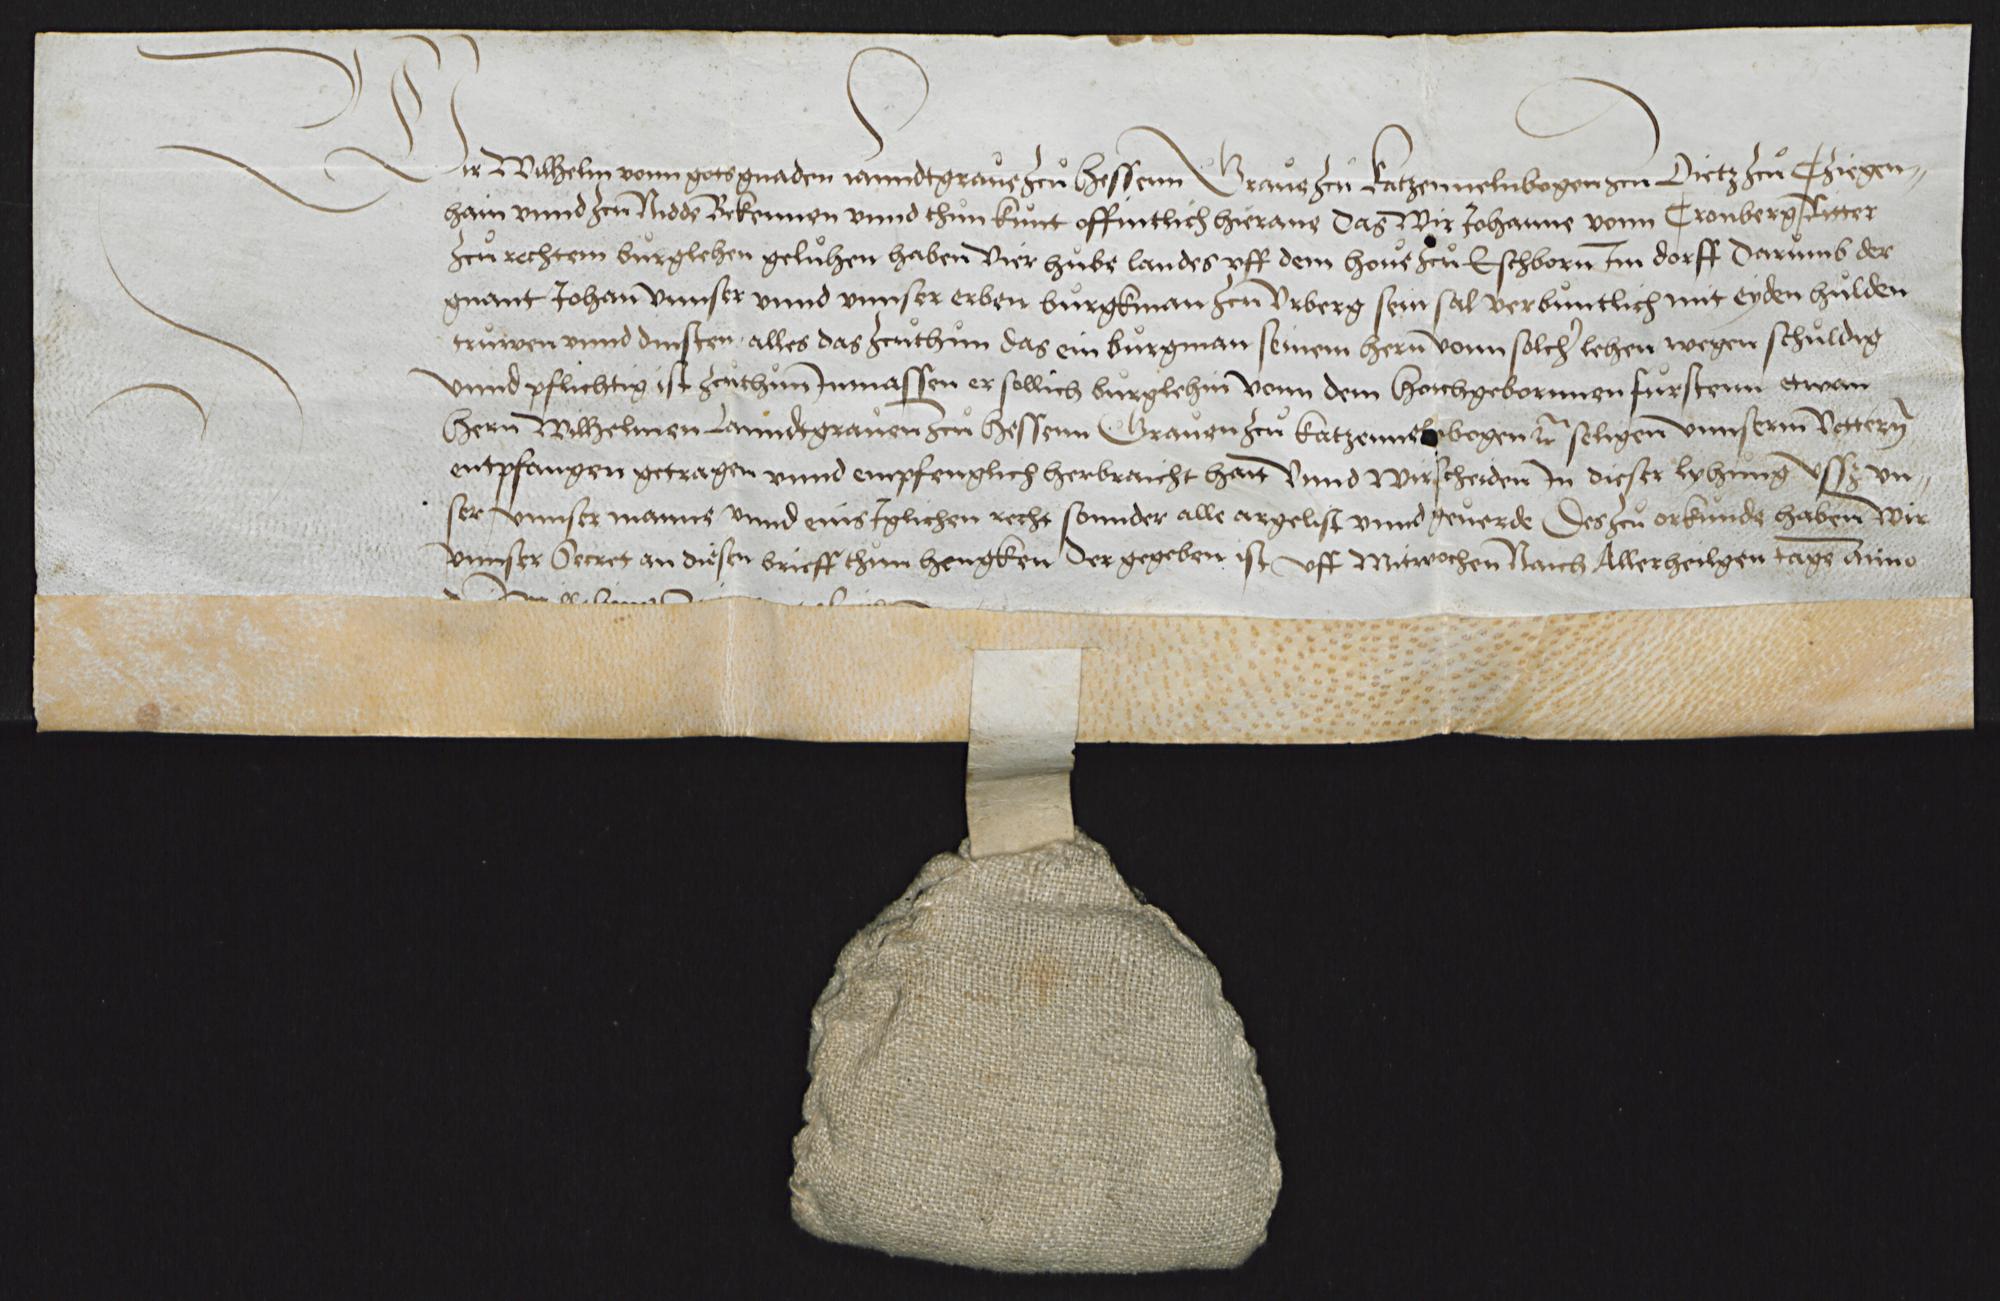 Wir Wilhelm vonn gots gnaden Lanndtgraue zcu Hessenn Graue zcu Katzennelnbogen zcu Dietz zcu Cziegen-
hain vnnd zcu Nidde Bekennen vnnd thun kunt offintlich hierane Das Wir Johanne vonn Cronberg Ritter
zcu rechtem burglehen geluhen haben Vier hube landes vff dem houe zcu Eschborn Im dorff Darumb der
gnant Johan Vnnser vnnd vnnser erben burgkman zcu Vrberg sein sal verbuntlich mit eyden hulden
truwen vnnd dinsten alles das zcuthun das ein burgman seinem hern vonn solcher lehen wegen schuldig
vnnd pflichtig ist zcuthun Inmassen er sollich burglehin vonn dem Hoichgebornnen furstenn etwan
Hern Wilhelmen Lanndtgrauen zcu Hessenn Grauen zcu Katzennelnbogen seligen vnnserm Vettern
entpfangen getragen vnnd empfenglich herbraicht hait Vnnd Wir scheiden In dieser lyhung vssz vn-
ser vnnser manne vnnd eins Iglichen recht sonnder alle argelist vnnd geuerde Des zcu orkunde haben Wir
vnnser Secret an diesen brieff thun hengken Der gegeben ist vff Mitwochen Naich Allerheilgen tage Anno